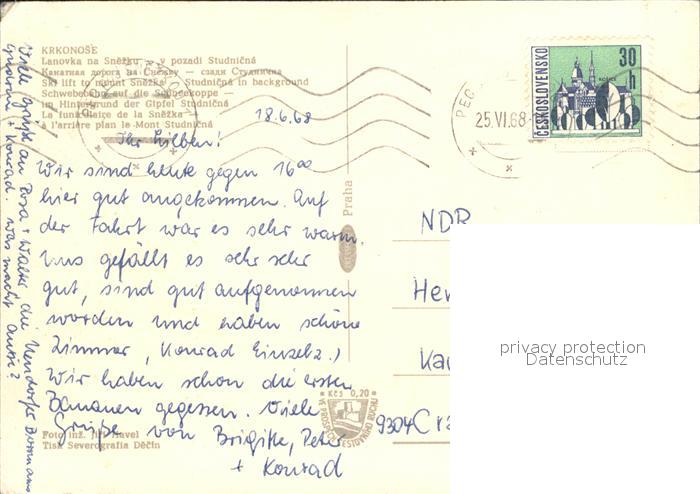 KRKONOŠE
Lanovka na Sněžku — v pozadí Studničná
Канатная дорога на Снежку — сзади Студнична
Ski lift to mount Sněžka - Studničná in background
Schwebebahn auf die Schneekoppe —
im Hintergrund der Gipfel Studničná
La funiculaire de la Sněžka —
à l'arrière plan le Mont Studničná
18.6.68
Ihr Lieben!
Wir sind heute gegen 16⁰⁰
hier gut angekommen. Auf
der Fahrt war es sehr warm.
Uns gefällt es sehr sehr
gut, sind gut aufgenommen
worden und haben schöne
Zimmer, (Konrad Einzelz.)
Wir haben schon die ersten
Bananen gegessen. Viele
Grüße von Brigitte, Peter
+ Konrad
Viele Grüße an Rosa + Walter die
+ Konrad. Was macht
Foto inž. Jiří Havel
Tisk Severografia Děčín
Praha
Kčs 0,20
ČESKOSLOVENSKO
30
h
PEC
25.VI.68
NDR
9304
privacy protection
Datenschutz